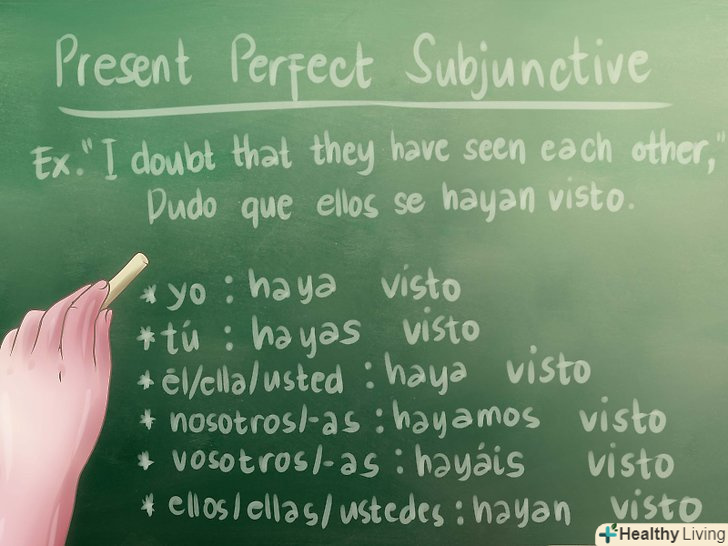 Present Perfect Subjunctive
Ex. "I doubt that they have seen each other,"
Dudo que ellos se hayan visto.
* yo : haya visto
* tú : hayas visto
* él/ella/usted : haya visto
* nosotros/-as : hayamos visto
* vosotros/-as : hayáis visto
* ellos/ellas/ustedes : hayan visto
Healthy Living